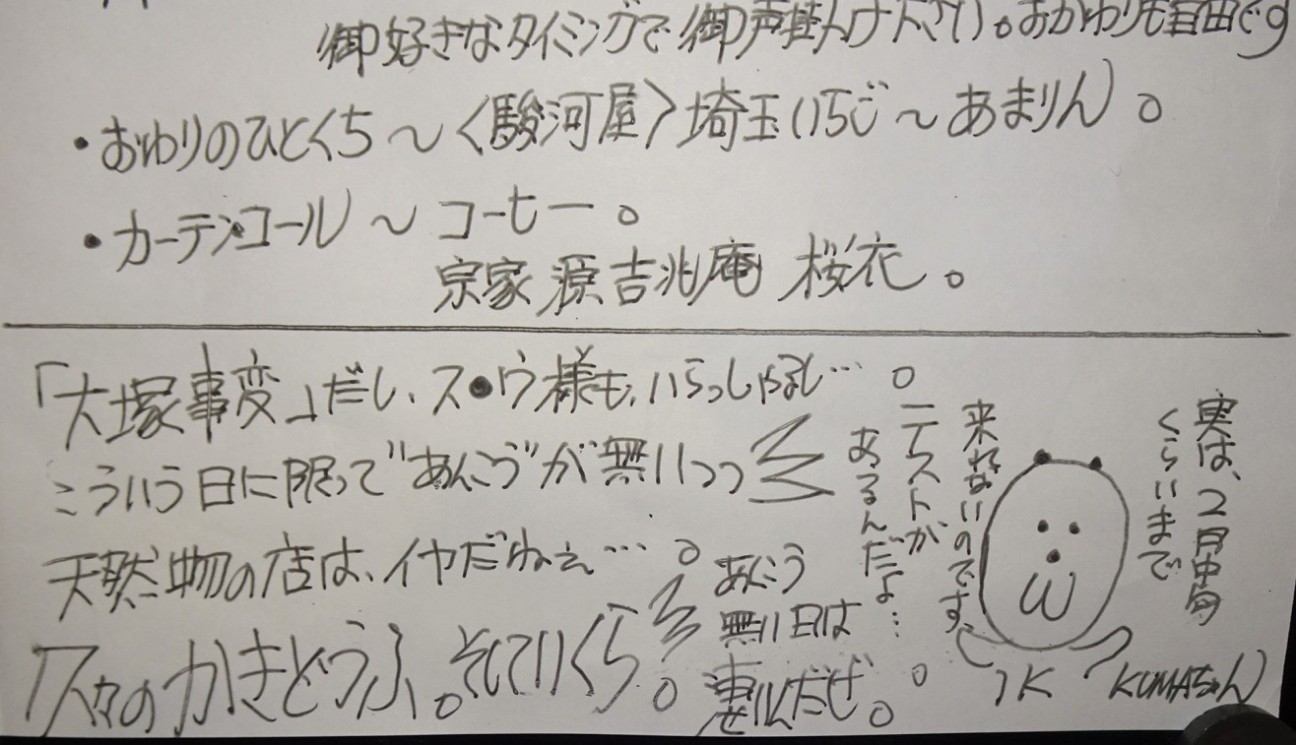 御好きなタイミングで御声掛け下さい。おかわりも自由です
・おわりのひとくち〜〈駿河屋〉埼玉いちご〜あまりん。
・カーテンコール〜コーヒー。
宗家 源 吉兆庵 桜衣。
「大塚事変」だし、ス●ウ様も、いらっしゃるし…。
こういう日に限って"あんこう"が無いっっ
天然物の店は、イヤだねぇ…。
久々のかきどうふ。そしていくら。
あんこう
無い日は
凄いんだぜ。
実は、2月中旬
くらいまで
来れないのです。
テストが
あるんだよ…。
1K KUMAちゃん